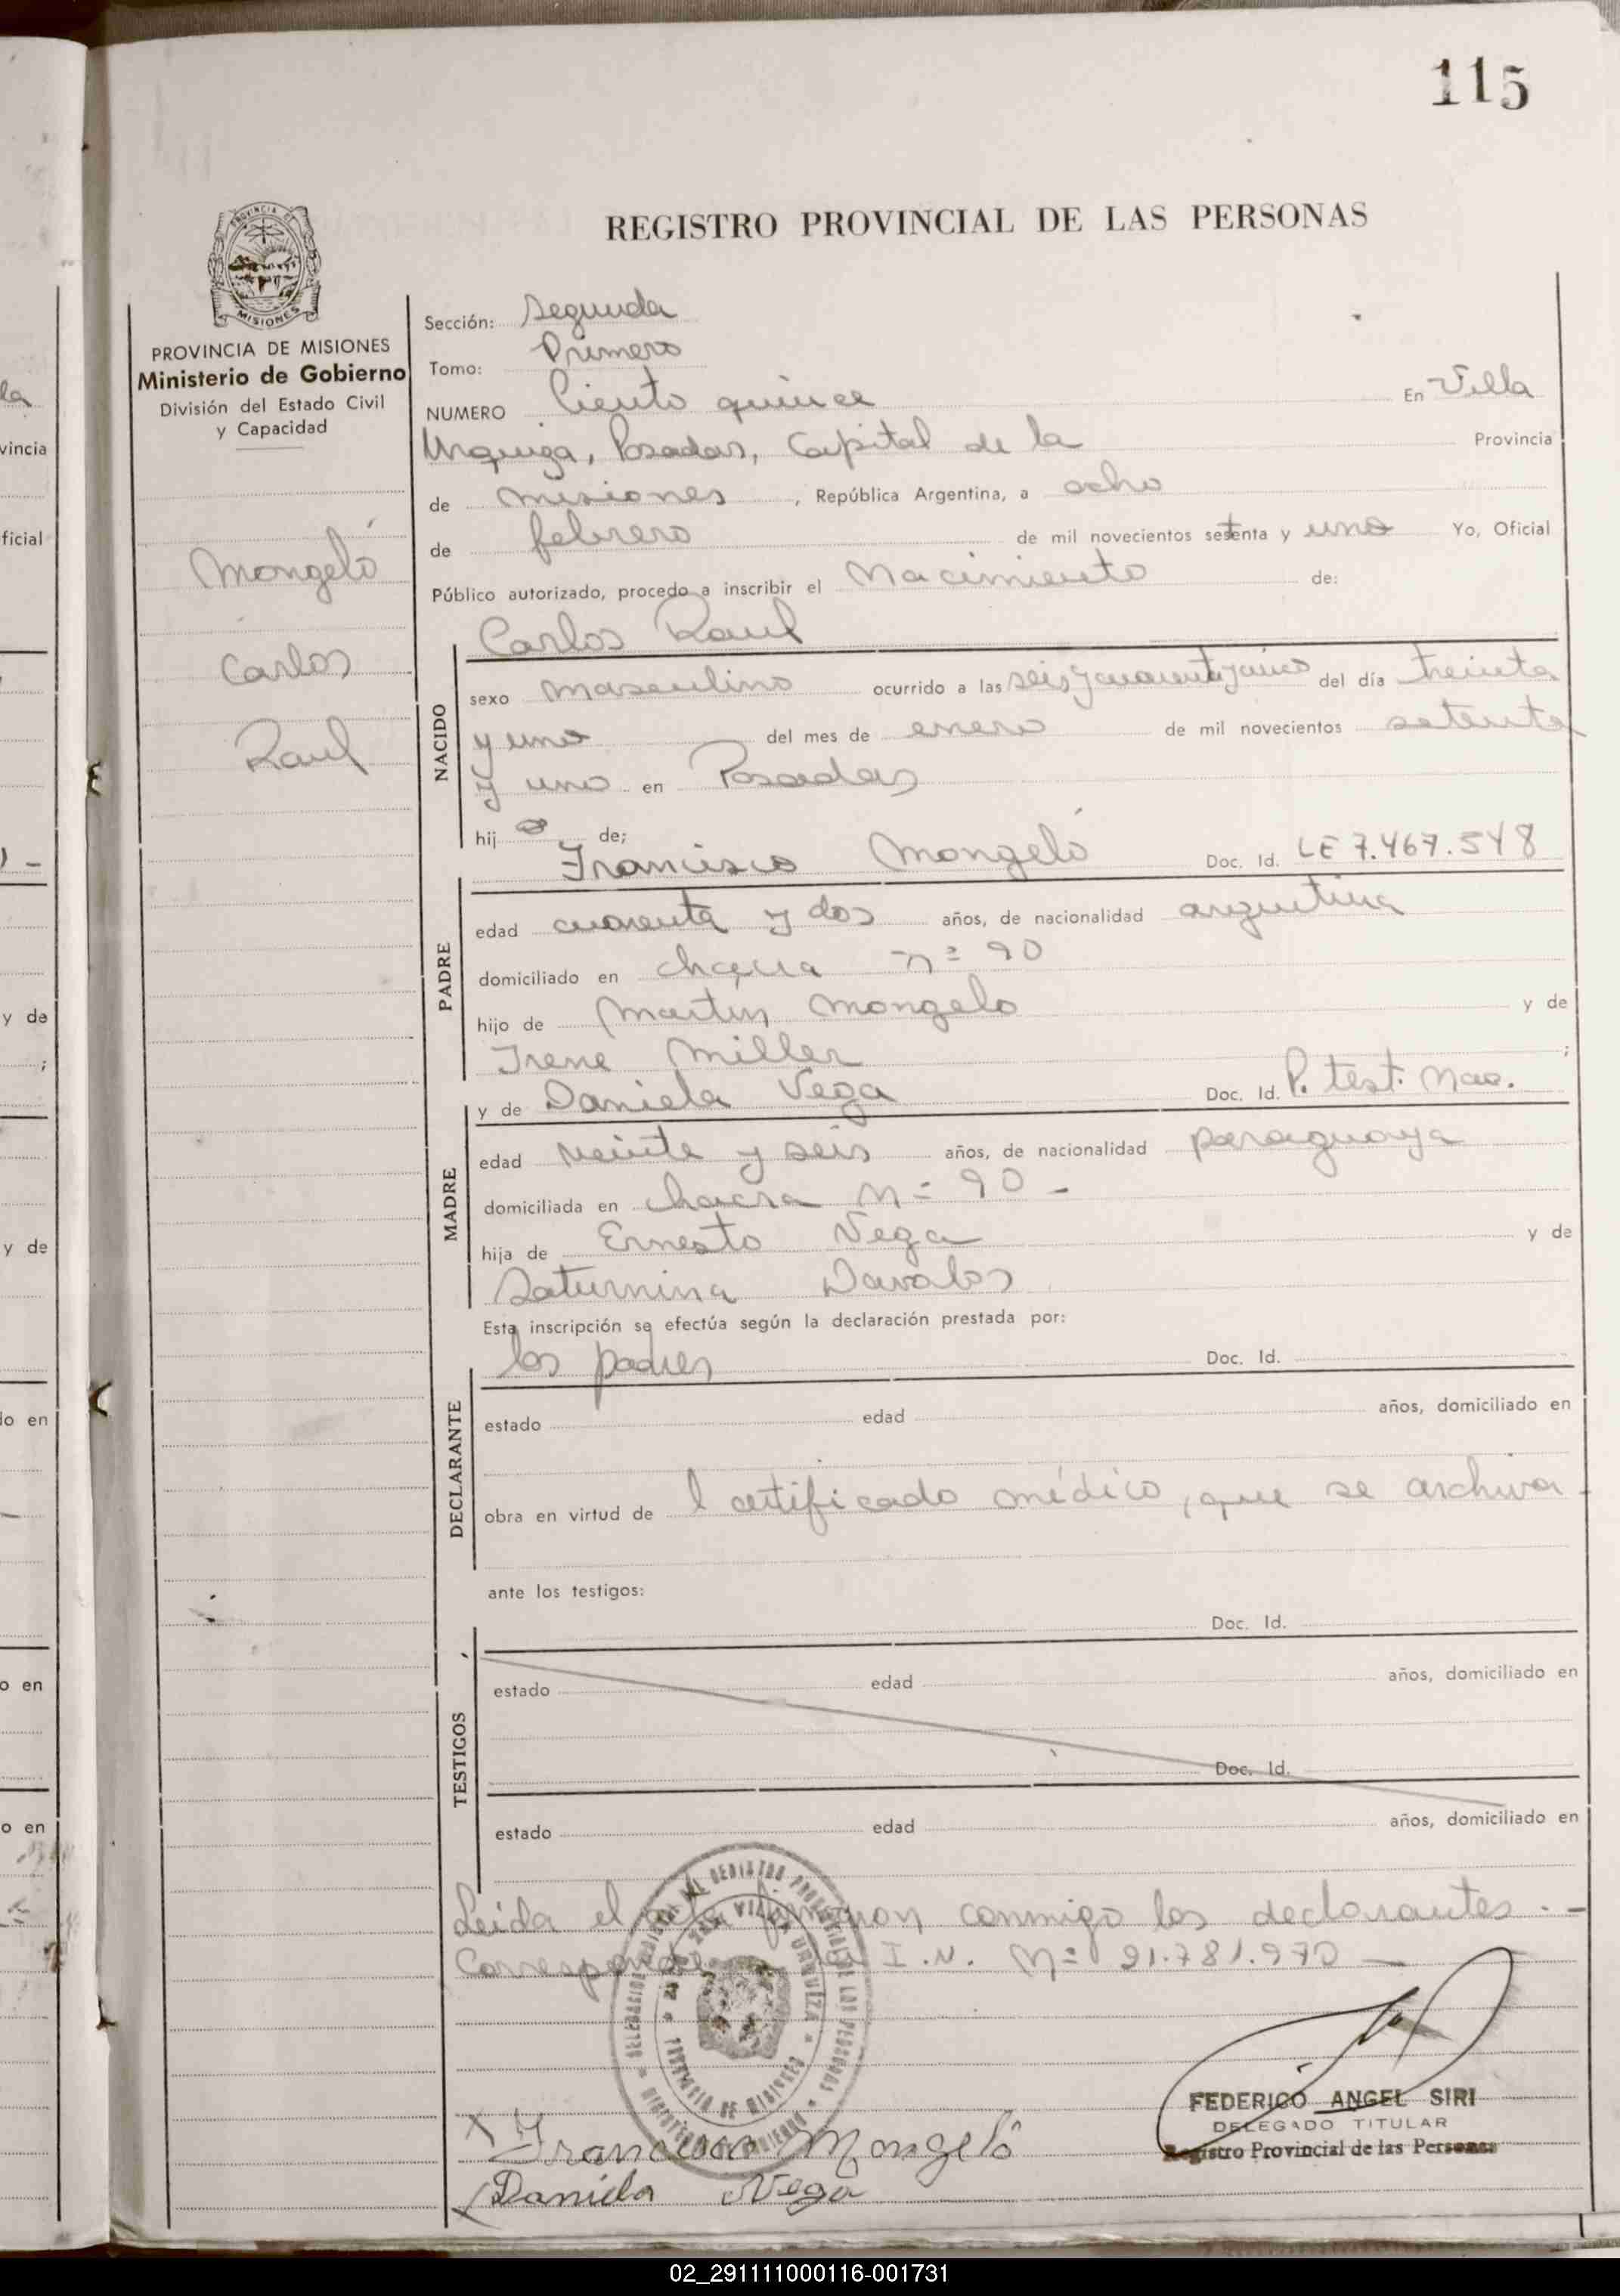 115
REGISTRO PROVINCIAL DE LAS PERSONAS
PROVINCIA DE MISIONES
Ministerio de Gobierno
División del Estado Civil
y Capacidad
Mongeló
Carlos
Raul
Sección: Segunda
Tomo: Primero
NUMERO Ciento quince En Villa
Urquiza, Posadas, Capital de la Provincia
de Misiones, República Argentina, a ocho
de febrero de mil novecientos setenta y uno Yo, Oficial
Público autorizado, procedo a inscribir el Nacimiento de:
Carlos Raul
NACIDO
sexo masculino ocurrido a las seis y cuarenta y cinco del día treinta
y uno del mes de enero de mil novecientos setenta
y uno en Posadas
hijo de;
Francisco Mongeló Doc. Id. LE 7.467.548
PADRE
edad cuarenta y dos años, de nacionalidad argentina
domiciliado en chacra nº 90
hijo de Martin Mongelo y de
Irene Miller ;
y de Daniela Vega Doc. Id. P. test. Nac.
MADRE
edad veinte y seis años, de nacionalidad paraguaya
domiciliada en chacra Nº 90 -
hija de Ernesto Vega y de
Saturnina Davalos
Esta inscripción se efectúa según la declaración prestada por:
los padres Doc. Id.
DECLARANTE
estado edad años, domiciliado en
obra en virtud de l certificado médico, que se archiva.
ante los testigos:
Doc. Id.
TESTIGOS
estado edad años, domiciliado en
Doc. Id.
estado edad años, domiciliado en
Leida el acta firman conmigo los declarantes. -
Corresponde I.N. Nº 21.781.970 —
FEDERICO ANGEL SIRI
DELEGADO TITULAR
Registro Provincial de las Personas
X Francisco Mongeló
X Daniela Vega
02_291111000116-001731